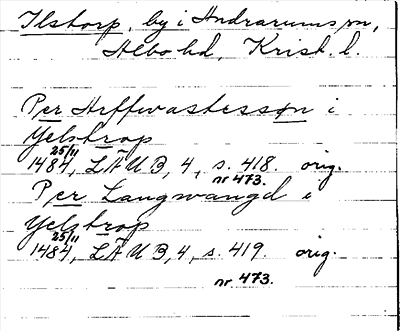 Ilstorp, by i Andrarums sn,
Albo hd, Krist. l.
Per Heffwastessøn i
Yelstrop
25/11
1484, LÄUB, 4, s. 418. orig.
nr 473.
Per Langwangd i
Yelstrop
25/11
1484, LÄUB, 4, s. 419. orig.
nr 473.